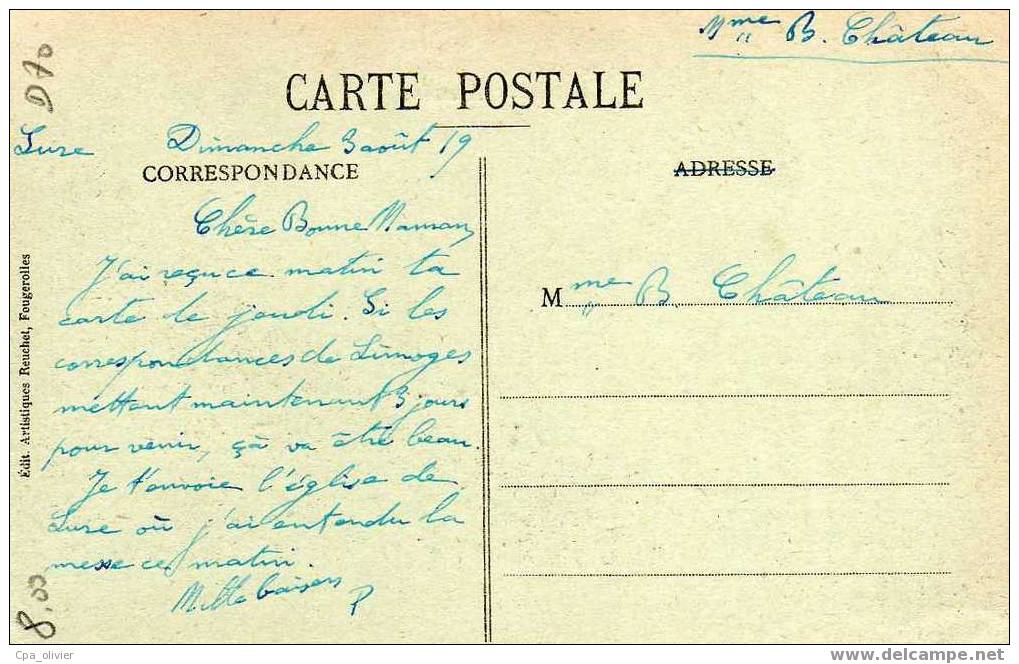 Mme B. Château
D70
CARTE POSTALE
Lure Dimanche 3 août 19
CORRESPONDANCE
ADRESSE
Chère Bonne Maman,
J'ai reçu ce matin ta
carte de jeudi. Si les
correspondances de Limoges
mettent maintenant 3 jours
pour venir, çà va être beau.
Je t'envoie l'église de
Lure où j'ai entendu la
messe ce matin.
Mille baisers
P
Mme B. Château
Édit. Artistiques Reuchet, Fougerolles
8,00
Cpa_olivier
www.delcampe.net